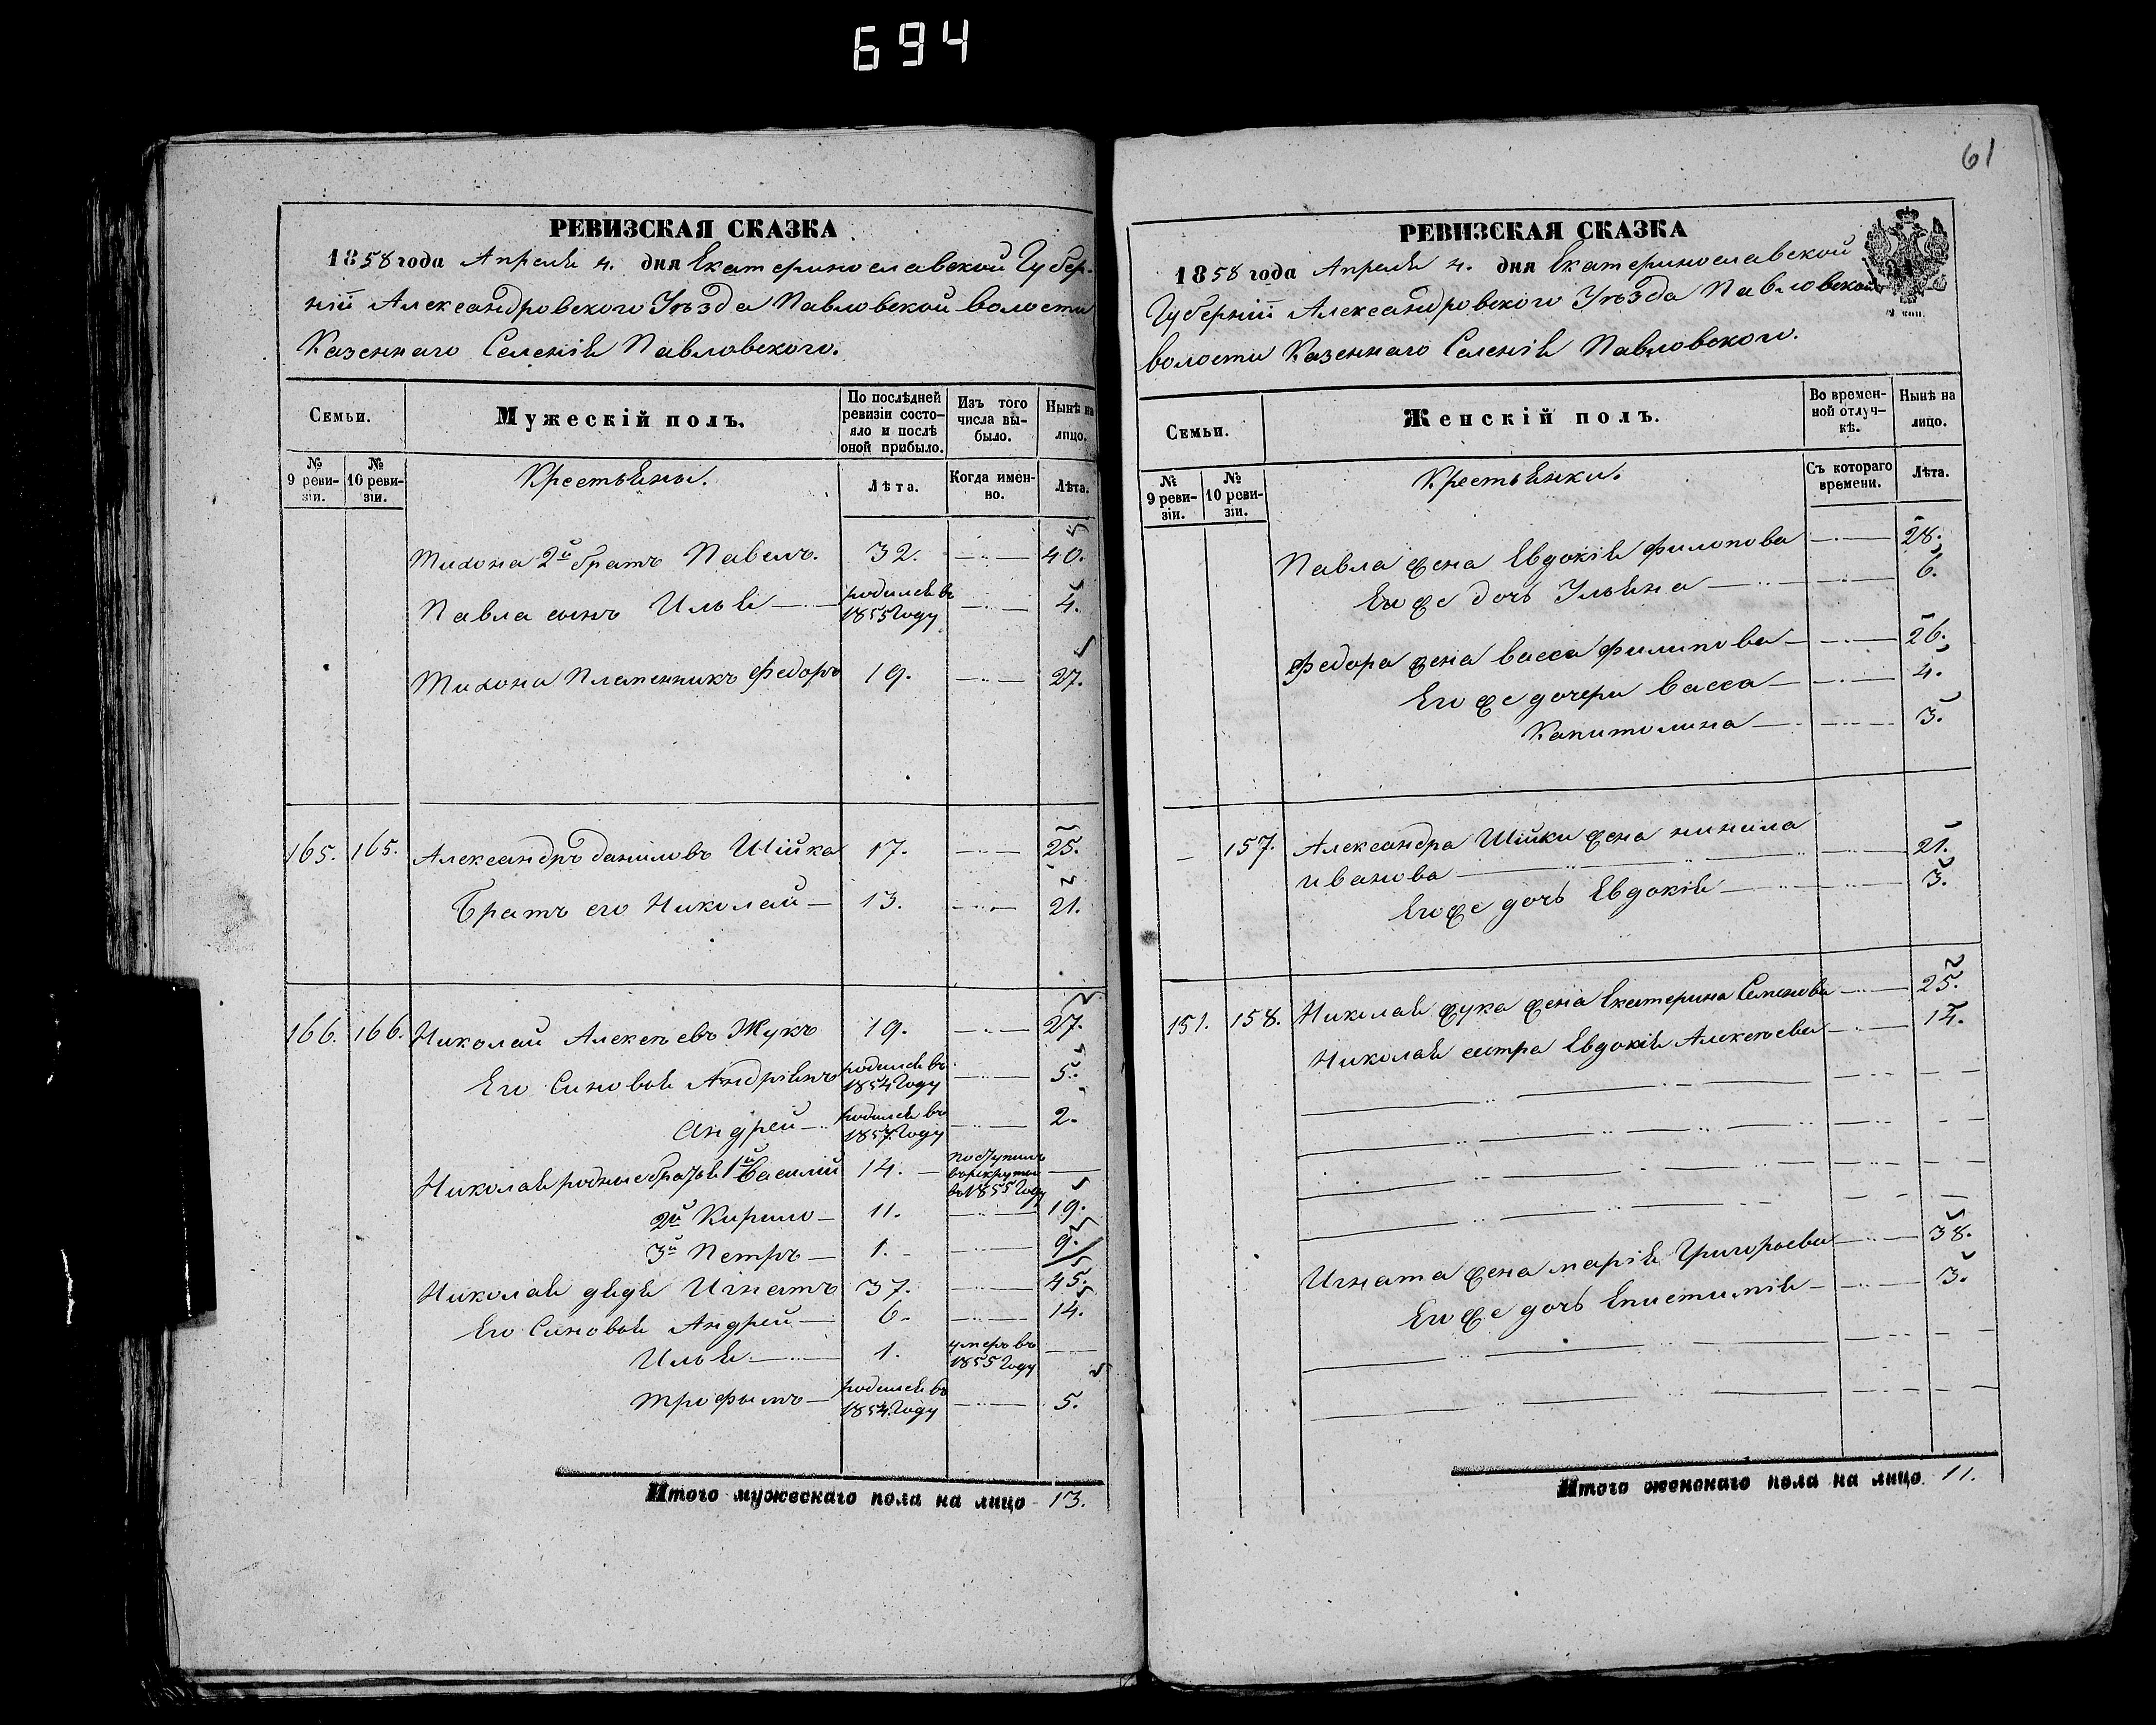 694
РЕВИЗСКАЯ СКАЗКА
1858 года Апреля 4. дня Екатеринославской Губер-
ніи Александровского Уѣзда Павловской волости
Казеннаго Селенія Павловского.
Семьи.
Мужескій полъ.
По послѣдней ревизіи состо-яло и послѣ оной прибыло.
Изъ того числа вы-было.
Нынѣ на лицо.
№ 9 реви-зіи.
№ 10 реви-зіи.
Крестьяны.
Лѣта.
Когда имен-но.
Лѣта.
Тихона 2й братъ Павелъ. 32. 40.
Павла сынъ Илья родился въ 1855 Году 4.
Тихона Племенникъ Федоръ 19. 27.
165. 165. Александръ даниловъ Шійка 17. 25.
Братъ его Николай 13. 21.
166. 166. Николай Алексѣевъ Жукъ 19. 27.
Его Синовья Андріянъ родился въ 1854 Году 5.
Андрей родился въ 1857 Году 2.
Николая родные братья 1й Василій 14. поступилъ въ рекруты въ 1855 Году
2й Кирило 11. 19.
3й Петръ 1. 9.
Николая дядя Игнатъ 37. 45.
Его Синовья Андрей 6. 14.
Илья 1. умеръ въ 1855 Году
Трофымъ родился въ 1854 Году 5.
Итого мужескаго пола на лицо 13.
61
РЕВИЗСКАЯ СКАЗКА
1858 года Апреля 4. дня Екатеринославской
Губерніи Александровского Уѣзда Павловской
волости Казеннаго Селенія Павловского.
Семьи.
Женскій полъ.
Во времен-ной отлуч-кѣ.
Нынѣ на лицо.
№ 9 реви-зіи.
№ 10 реви-зіи.
Крестьянки.
Съ котораго времени.
Лѣта.
Павла жена Евдокія Филипова 28.
Его же дочь Ульяна 6.
Федора жена Васса Филипова 26.
Его же дочери Васса 4.
Капитолина 3.
157. Александра Шійки жена
Иванова 21.
Его же дочь Евдокія 3.
151. 158. Николая жука жена Екатерина Семенова 25.
Николая сестра Евдокія Алексѣева 14.
Игната жена марія Григорьева 38.
Его же дочь Епистимія 3.
Итого женскаго пола на лицо 11.